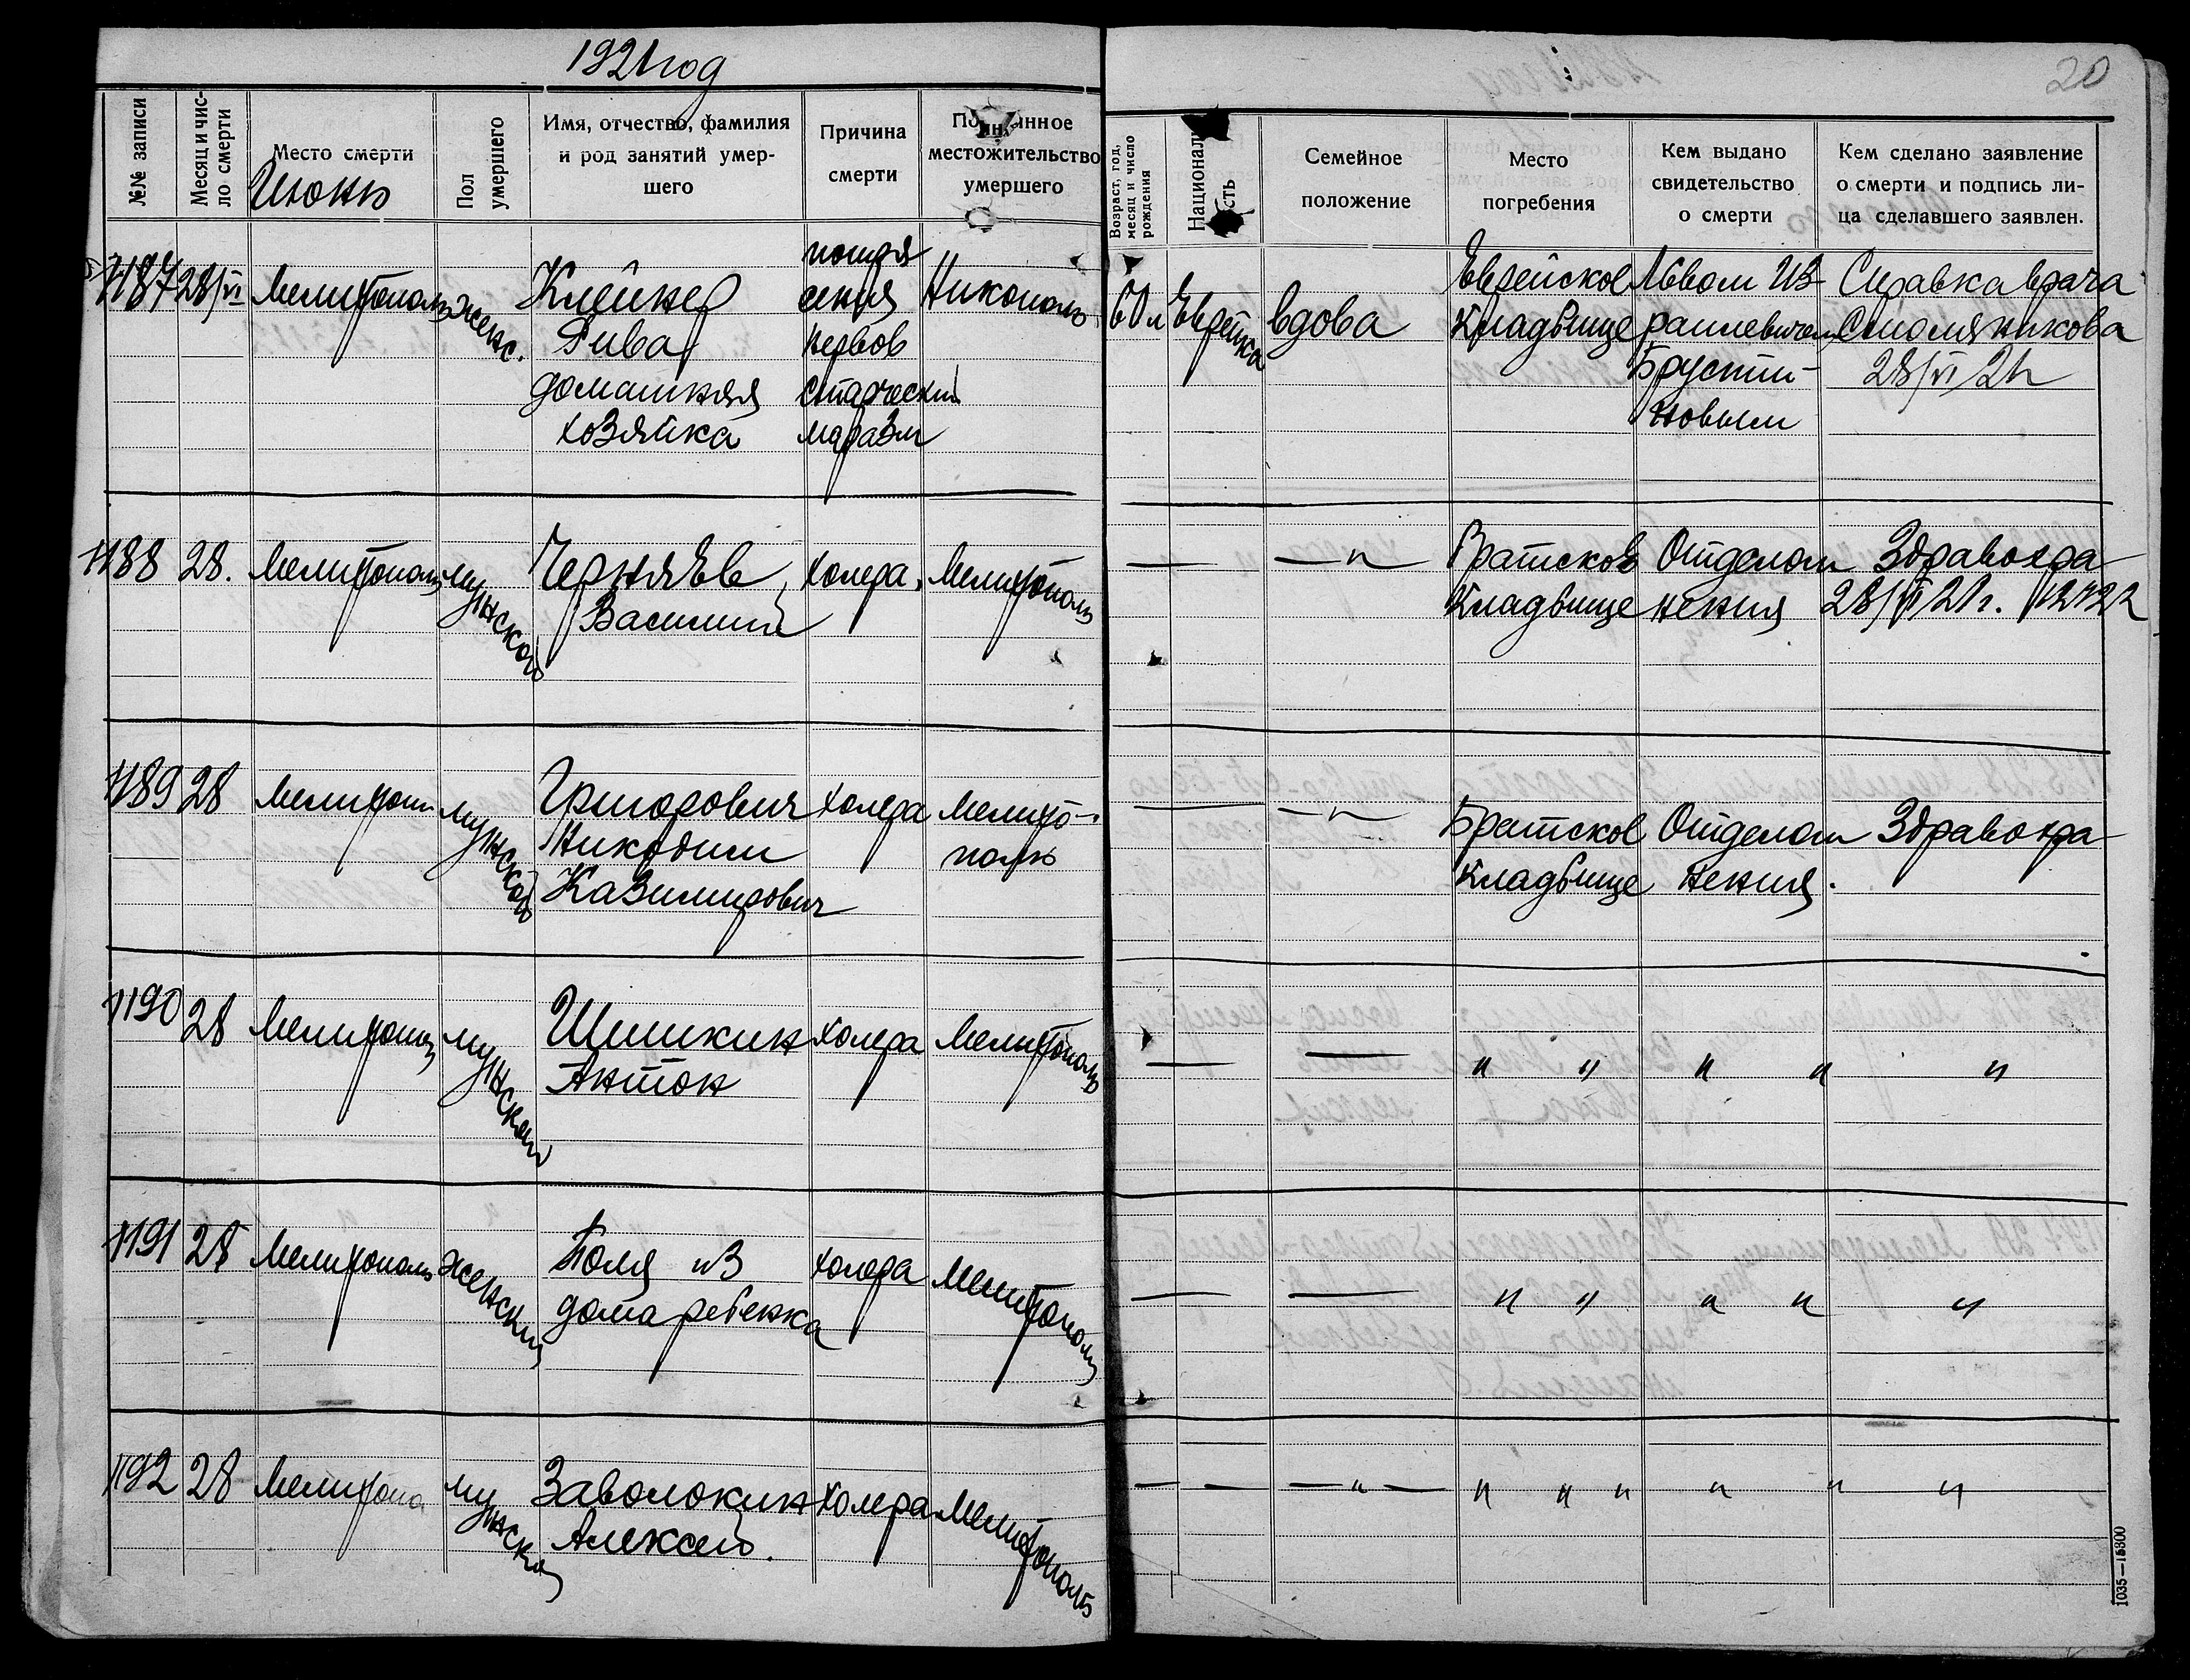 1921 год
20
№№ записи
Месяц и чис-
ло смерти
Место смерти
Июнь
Пол
умершего
Имя, отчество, фамилия
и род занятий умер-
шего
Причина
смерти
местожительство
умершего
Возраст, год,
месяц и число
рождения
Семейное
положение
Место
погребения
Кем выдано
свидетельство
о смерти
Кем сделано заявление
о смерти и подпись ли-
ца сделавшего заявлен.
1187
28/VI
Мелитополь
женс.
Клейнер
Рива
домашняя
хозяйка
потря
сения
нервов
старческий
маразм
Никополь
60 л
Еврейка
вдова
Еврейское
Кладбище
Львом Из-
раилевичем
Брусти-
новым
Справка врача
Столяникова
28/VI 21г
1188
28.
Мелитополь
мужской
Черняев
Василий
Холера.
Мелитополь
— — — " —
Братское
Кладбище
Отделом Здравохра
нения 28/VI 21г.
1189
28
Мелитопол
мужской
Григорович
Никодим
Казимирович
Холера
Мелито-
поль
— — — " —
Братское
Кладбище
Отделом Здравохра
нения.
1190
28
Мелитополь
мужской
Шишкин
Антон
Холера
Мелитополь
— — — " " " " "
1191
28
Мелитополь
женский
Поля из
дома ребенка
холера
Мелитополь
— — — " " " " "
1192
28
Мелитопол
мужской
Заволокин
Алексей.
Холера
Мелитополь
— — — " — " " " " " "
1035—15800